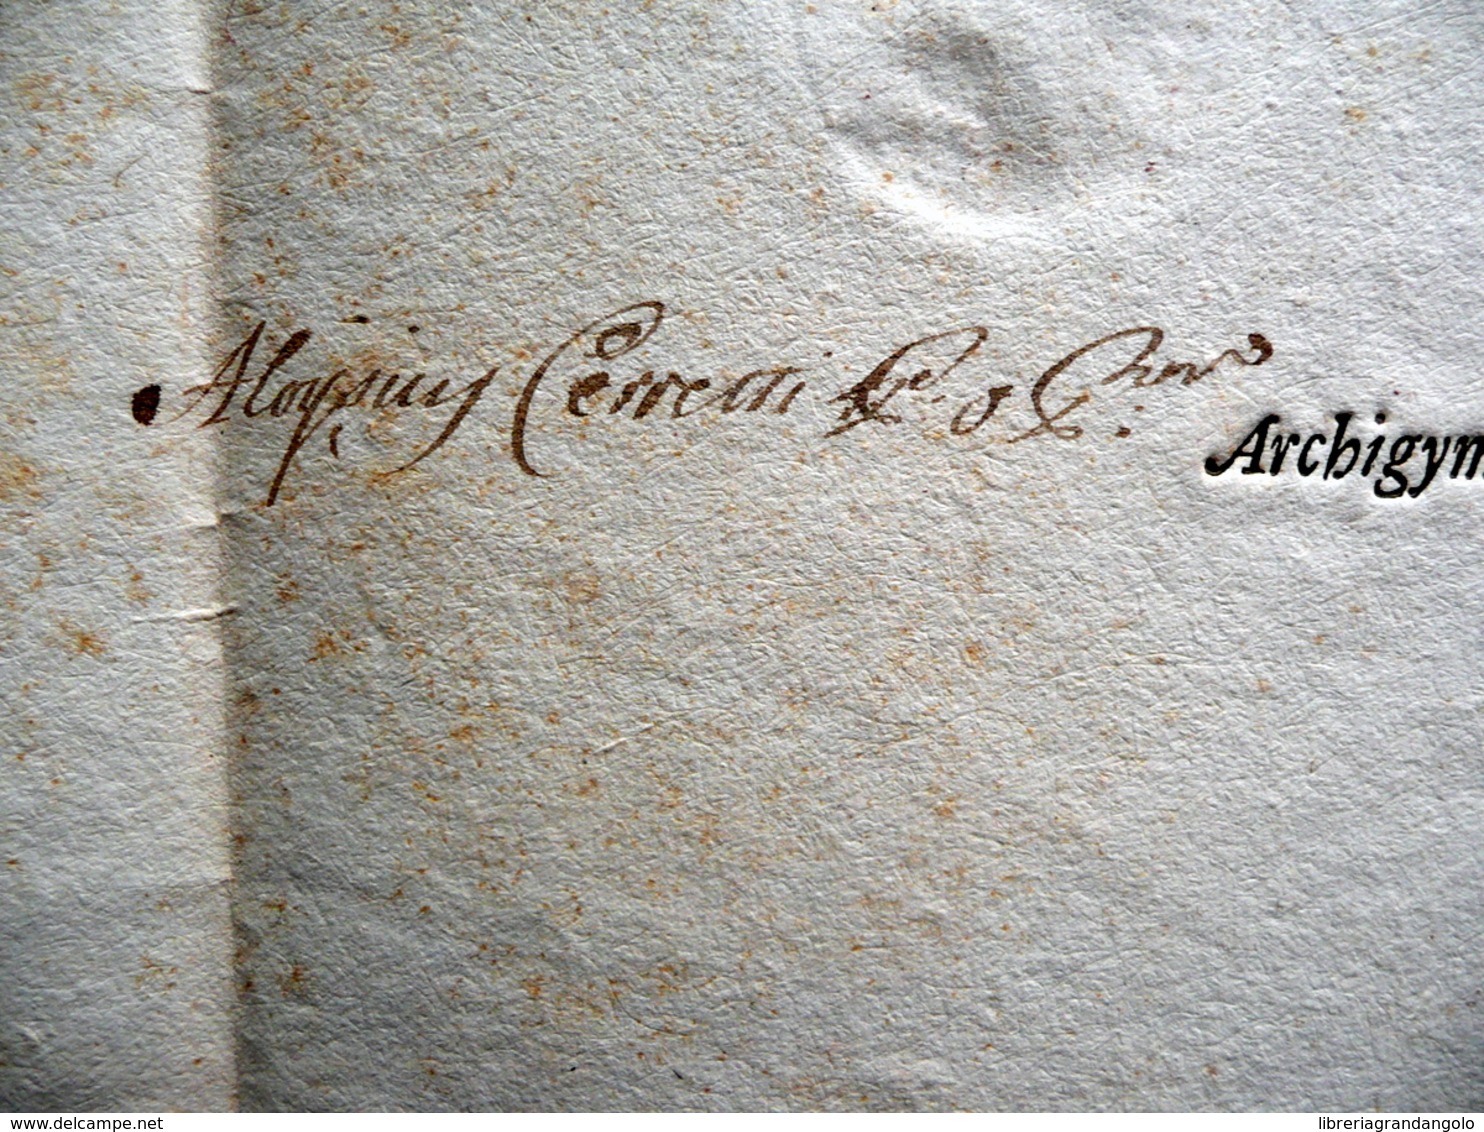 Aloysius Cerretti
Archigym
delcampe.net
libreriagrandangolo